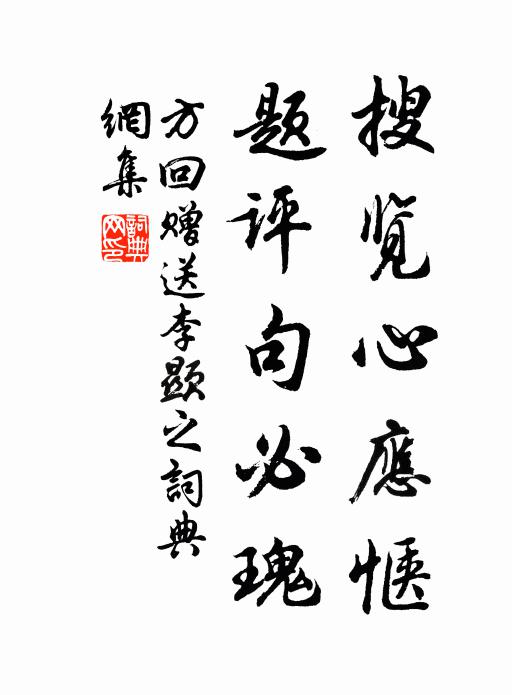 搜览心應惬
题评句必瑰
方回赠送李顕之詞典
網集
詞典网印